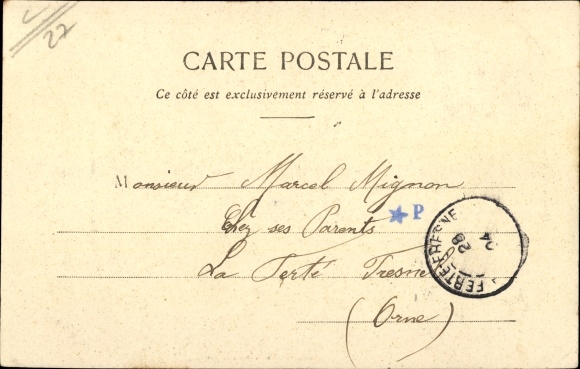 27
CARTE POSTALE
Ce côté est exclusivement réservé à l'adresse
Monsieur Marcel Mignon
Chez ses Parents
★ P
La Ferté Fresnel
(Orne)
FERTE-FRESNE
28
04